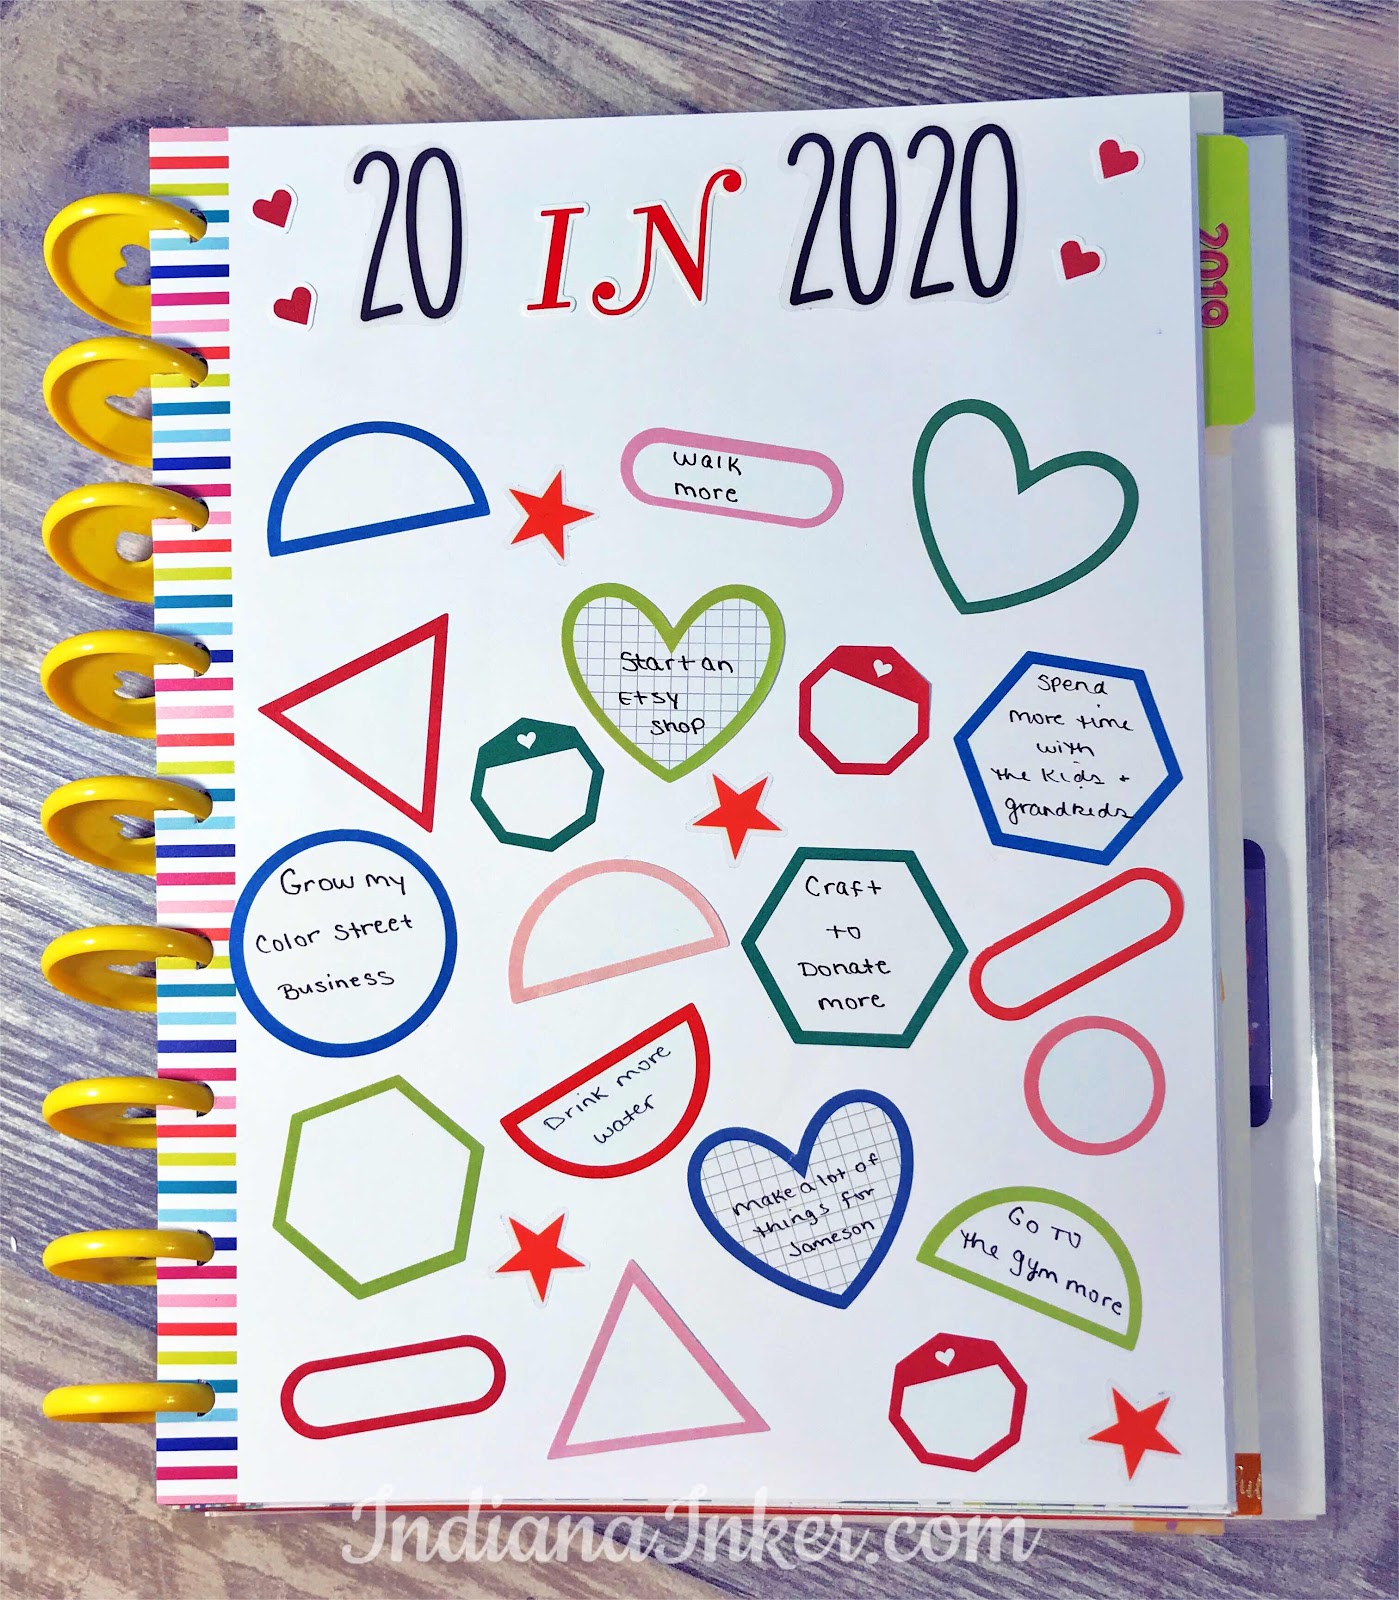 20 IN 2020
2019
Walk
more
Start an
Etsy
Shop
Spend
more time
with
the kids +
grandkids
Grow my
Color Street
Business
Craft
to
Donate
more
Drink more
water
Make a lot of
things for
Jameson
Go To
the gym more
IndianaInker.com